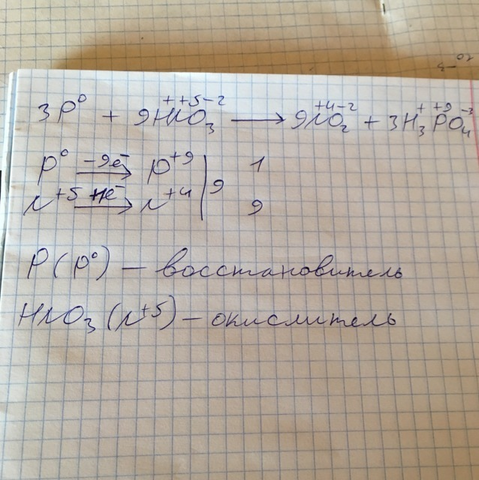 3P⁰ + 9H⁺N⁺⁵O₃⁻² → 9N⁺⁴O₂⁻² + 3H₃⁺P⁺⁹O₄⁻³
P⁰ –9e̅→ P⁺⁹ | 9 | 1
N⁺⁵ +1e̅→ N⁺⁴ | 9
P(P⁰) – восстановитель
HNO₃(N⁺⁵) – окислитель